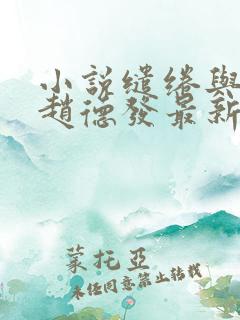 小說繾綣與
趙德發最新
蒙托亞
未任同意禁止转载